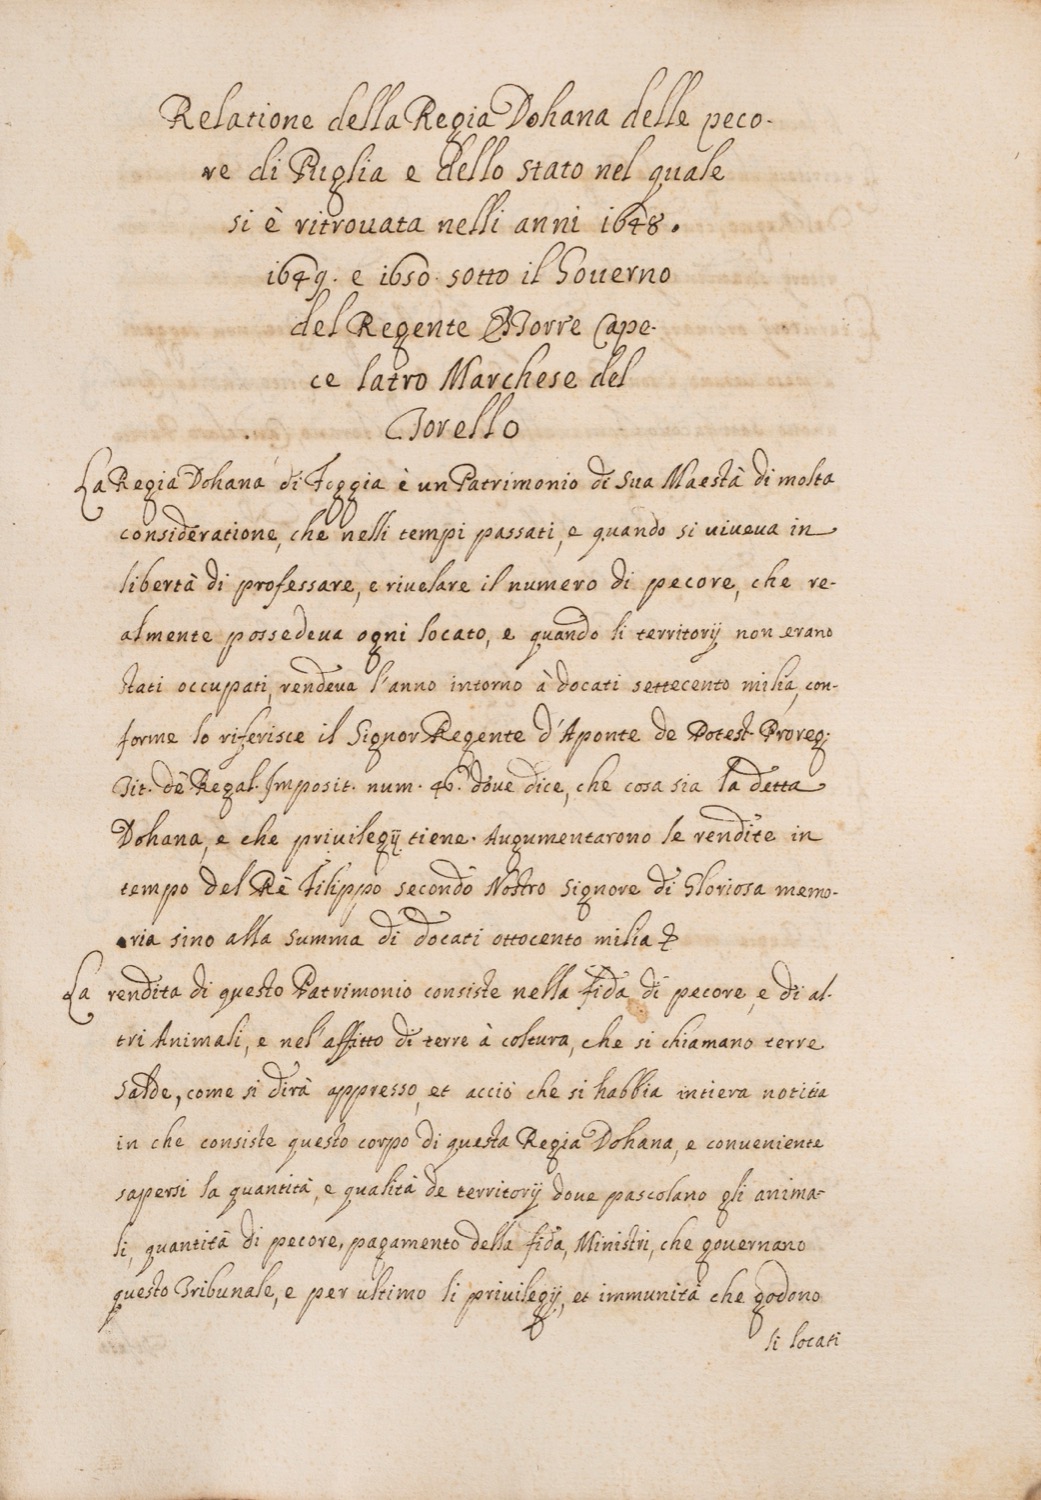 Relatione della Regia Dohana delle peco-
re di Puglia e dello stato nel quale
si è ritrouata nelli anni 1648.
1649. e 1650. sotto il Gouerno
del Regente Ettorre Cape-
ce latro Marchese del
Torello
La Regia Dohana di Foggia è un Patrimonio di Sua Maestà di molta
consideratione, che nelli tempi passati, e quando si uiueua in
libertà di professare, e riuelare il numero di pecore, che re-
almente possedeua ogni locato, e quando li territorij non erano
stati occupati, rendeua l'anno intorno à docati settecento milia, con-
forme lo riferisce il Signor Regente d'Aponte de Potest. Proreg:
Tit. de Regal. Imposit. num. 46. doue dice, che cosa sia la detta
Dohana, e che priuilegij tiene. Augumentarono le rendite in
tempo del Rè Filippo secondo Nostro Signore di Gloriosa memo-
ria sino alla summa di docati ottocento milia
La rendita di questo Patrimonio consiste nella fida di pecore, e di al-
tri Animali, e nel'affitto di terre à coltura, che si chiamano terre
Salde, come si dirà appresso, et acciò che si habbia intiera notitia
in che consiste questo corpo di questa Regia Dohana, e conueniente
sapersi la quantità, e qualità de territorij doue pascolano gli anima-
li, quantità di pecore, pagamento della fida, Ministri, che gouernano
questo Tribunale, e per ultimo li priuilegij, et immunità che godono
li locati